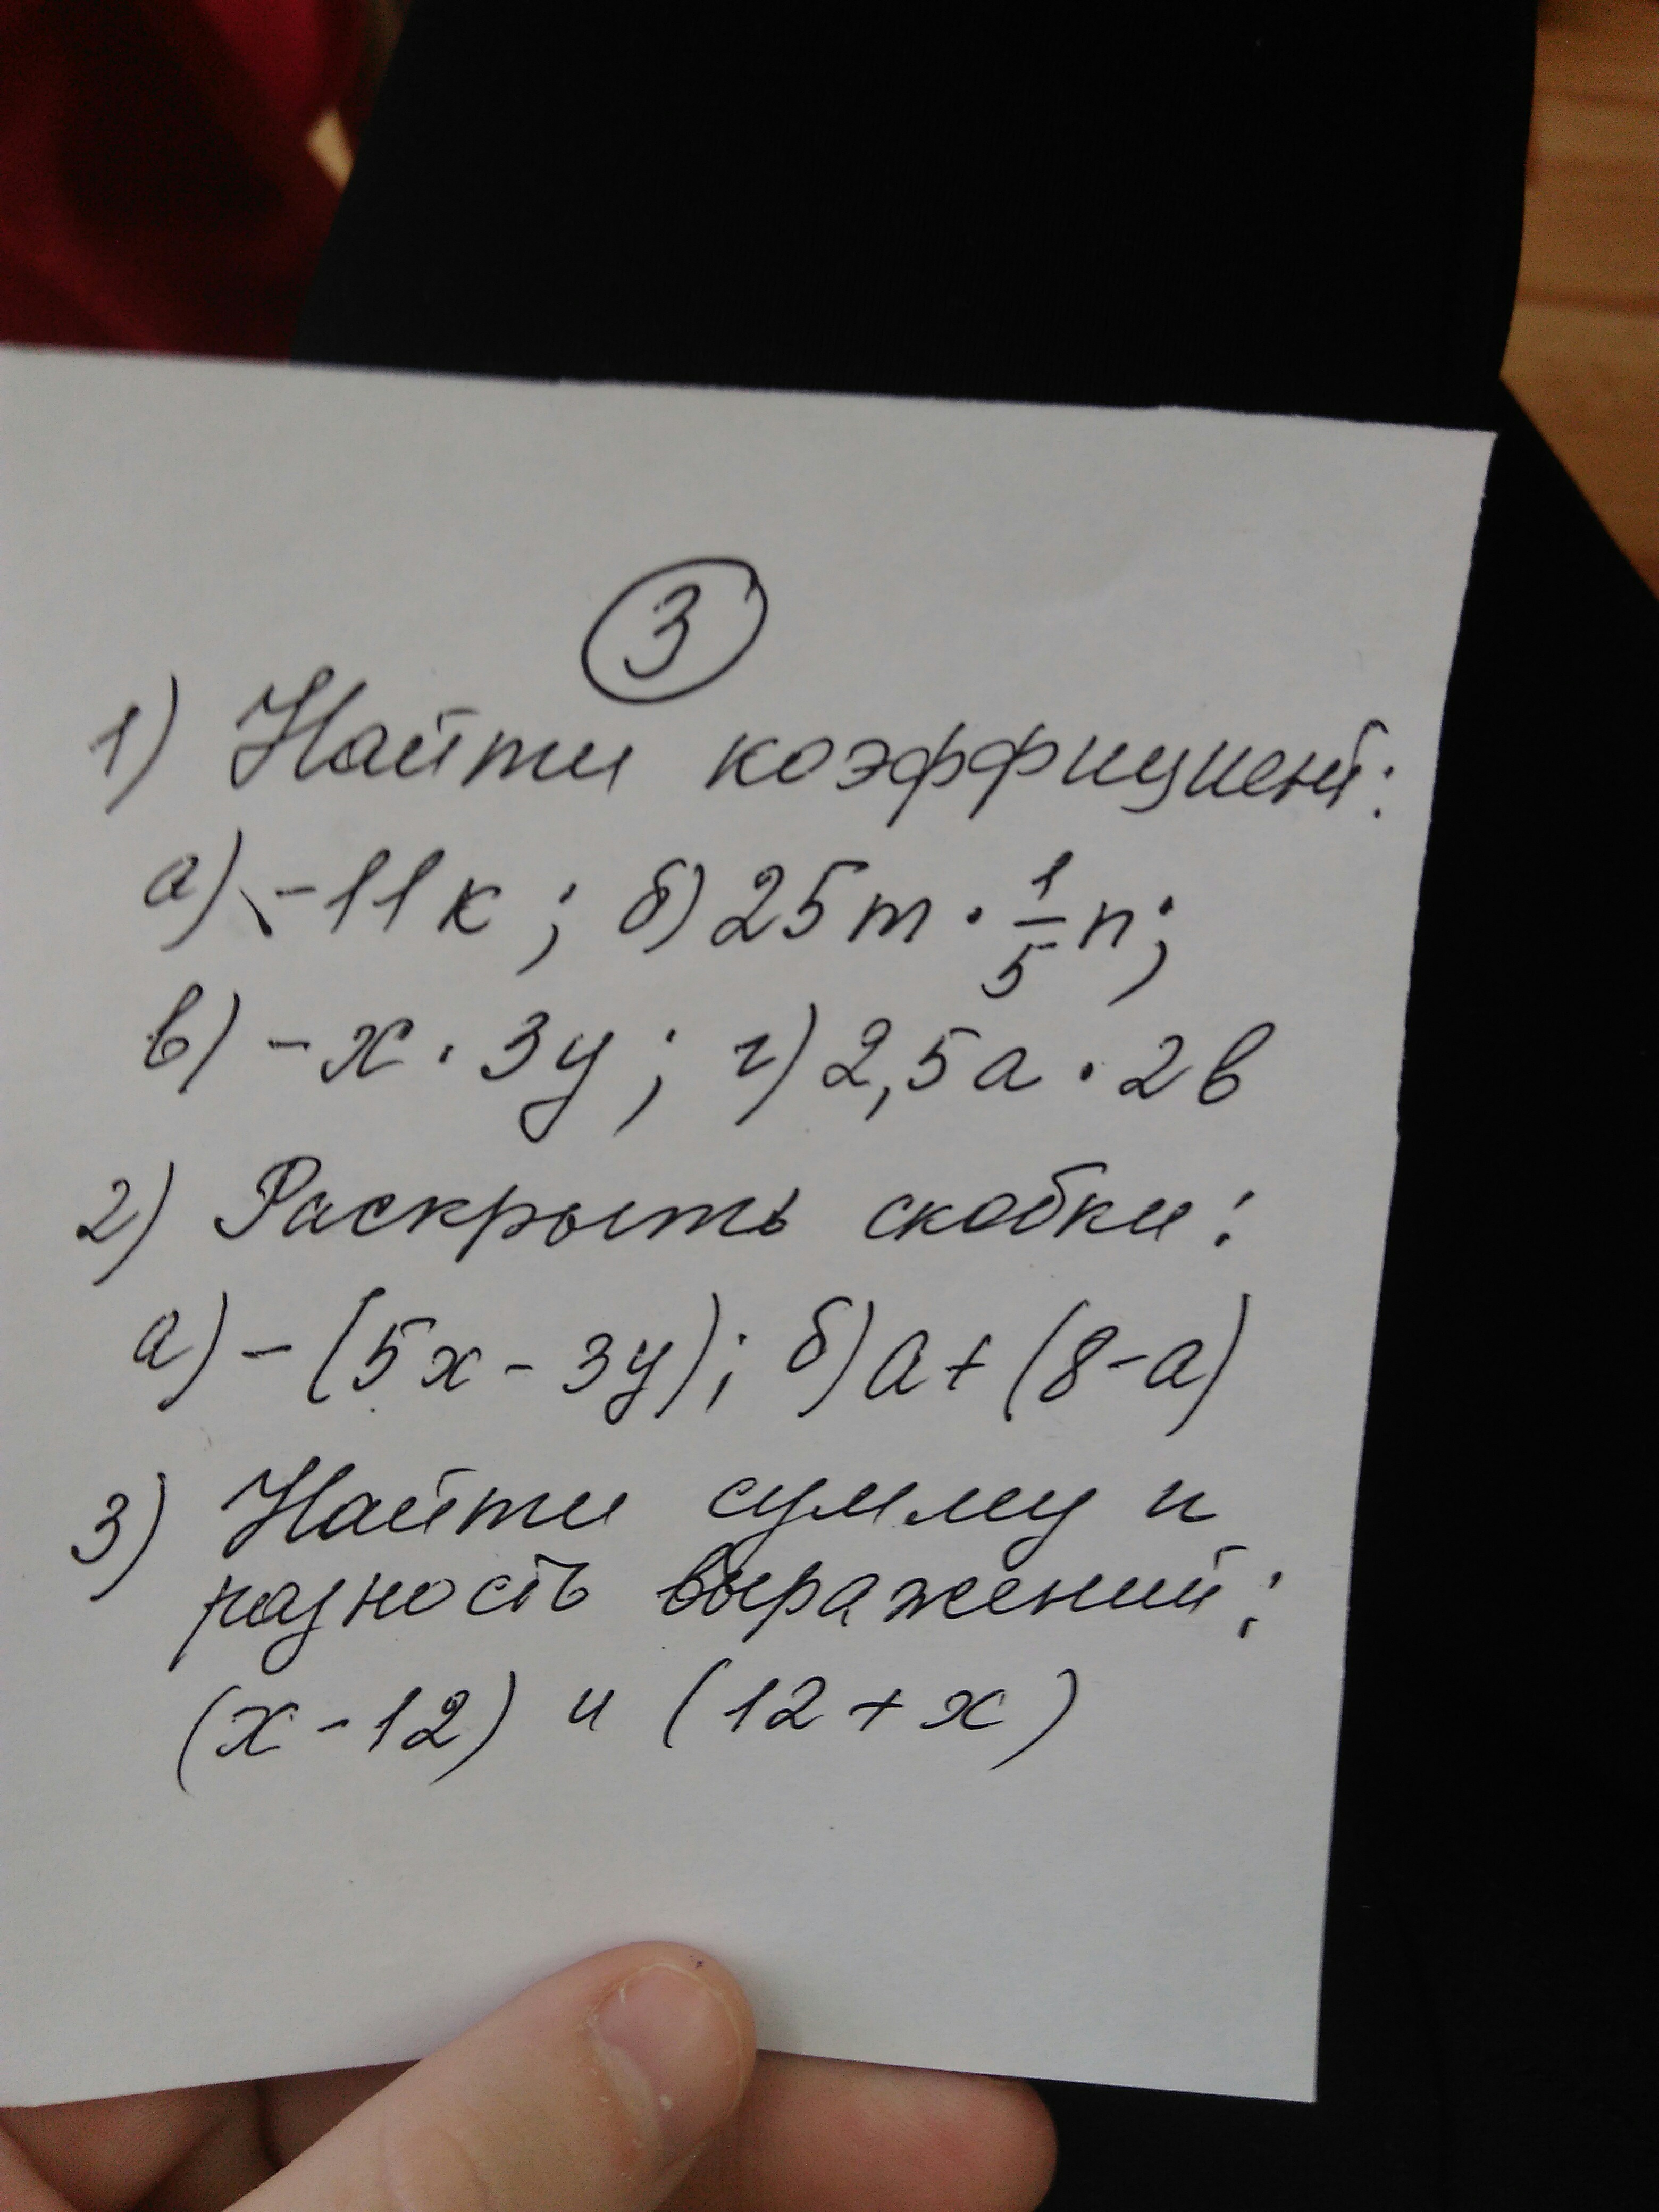 3
1) Найти коэффициент:
а) -11к; б) 25m · 1/5 n;
в) -х · 3у; г) 2,5а · 2в
2) Раскрыть скобки:
а) -(5х - 3у); б) а + (8-а)
3) Найти сумму и
разность выражений:
(х - 12) и (12 + х)